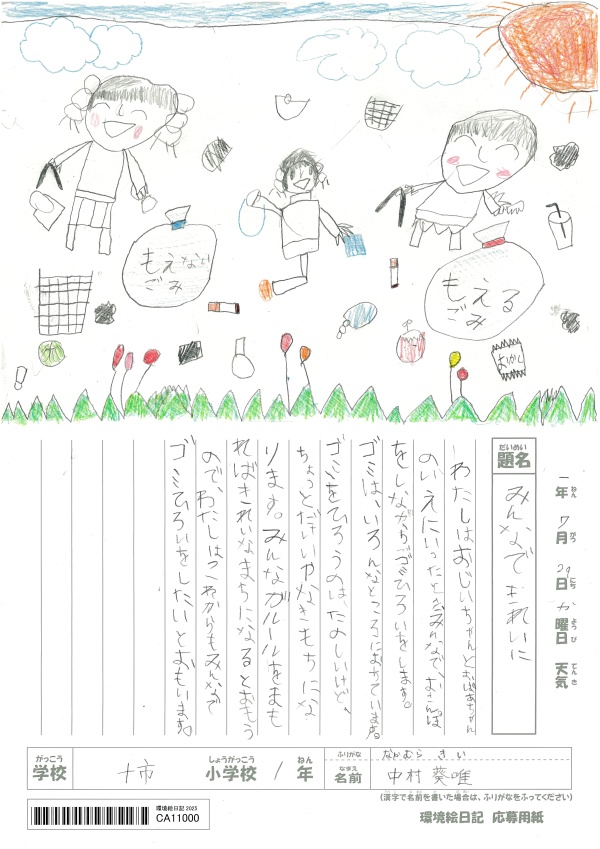 もえない
ごみ
もえる
ごみ
おかし
一年 7月 29日 か曜日 天気
ねん がつ にち ようび てんき
題名
だいめい
みんなできれいに
わたしはおじいちゃんとおばあちゃん
のいえにいったとき、みんなで、おさんぽ
をしながらゴミひろいをします。
ゴミは、いろんなところにおちています。
ゴミをひろうのは、たのしいけど、
ちょっとだけいやなきもちにな
ります。みんながルールをまも
ればきれいなまちになるとおもう
ので、わたしはこれからもみんなで
ゴミひろいをしたいとおもいます。
がっこう しょうがっこう ねん
学校 十市 小学校 1年
ふりがな なかむら きい
なまえ
名前 中村 葵唯
(漢字で名前を書いた場合は、ふりがなをふってください)
環境絵日記 2025
CA11000
環境絵日記 応募用紙